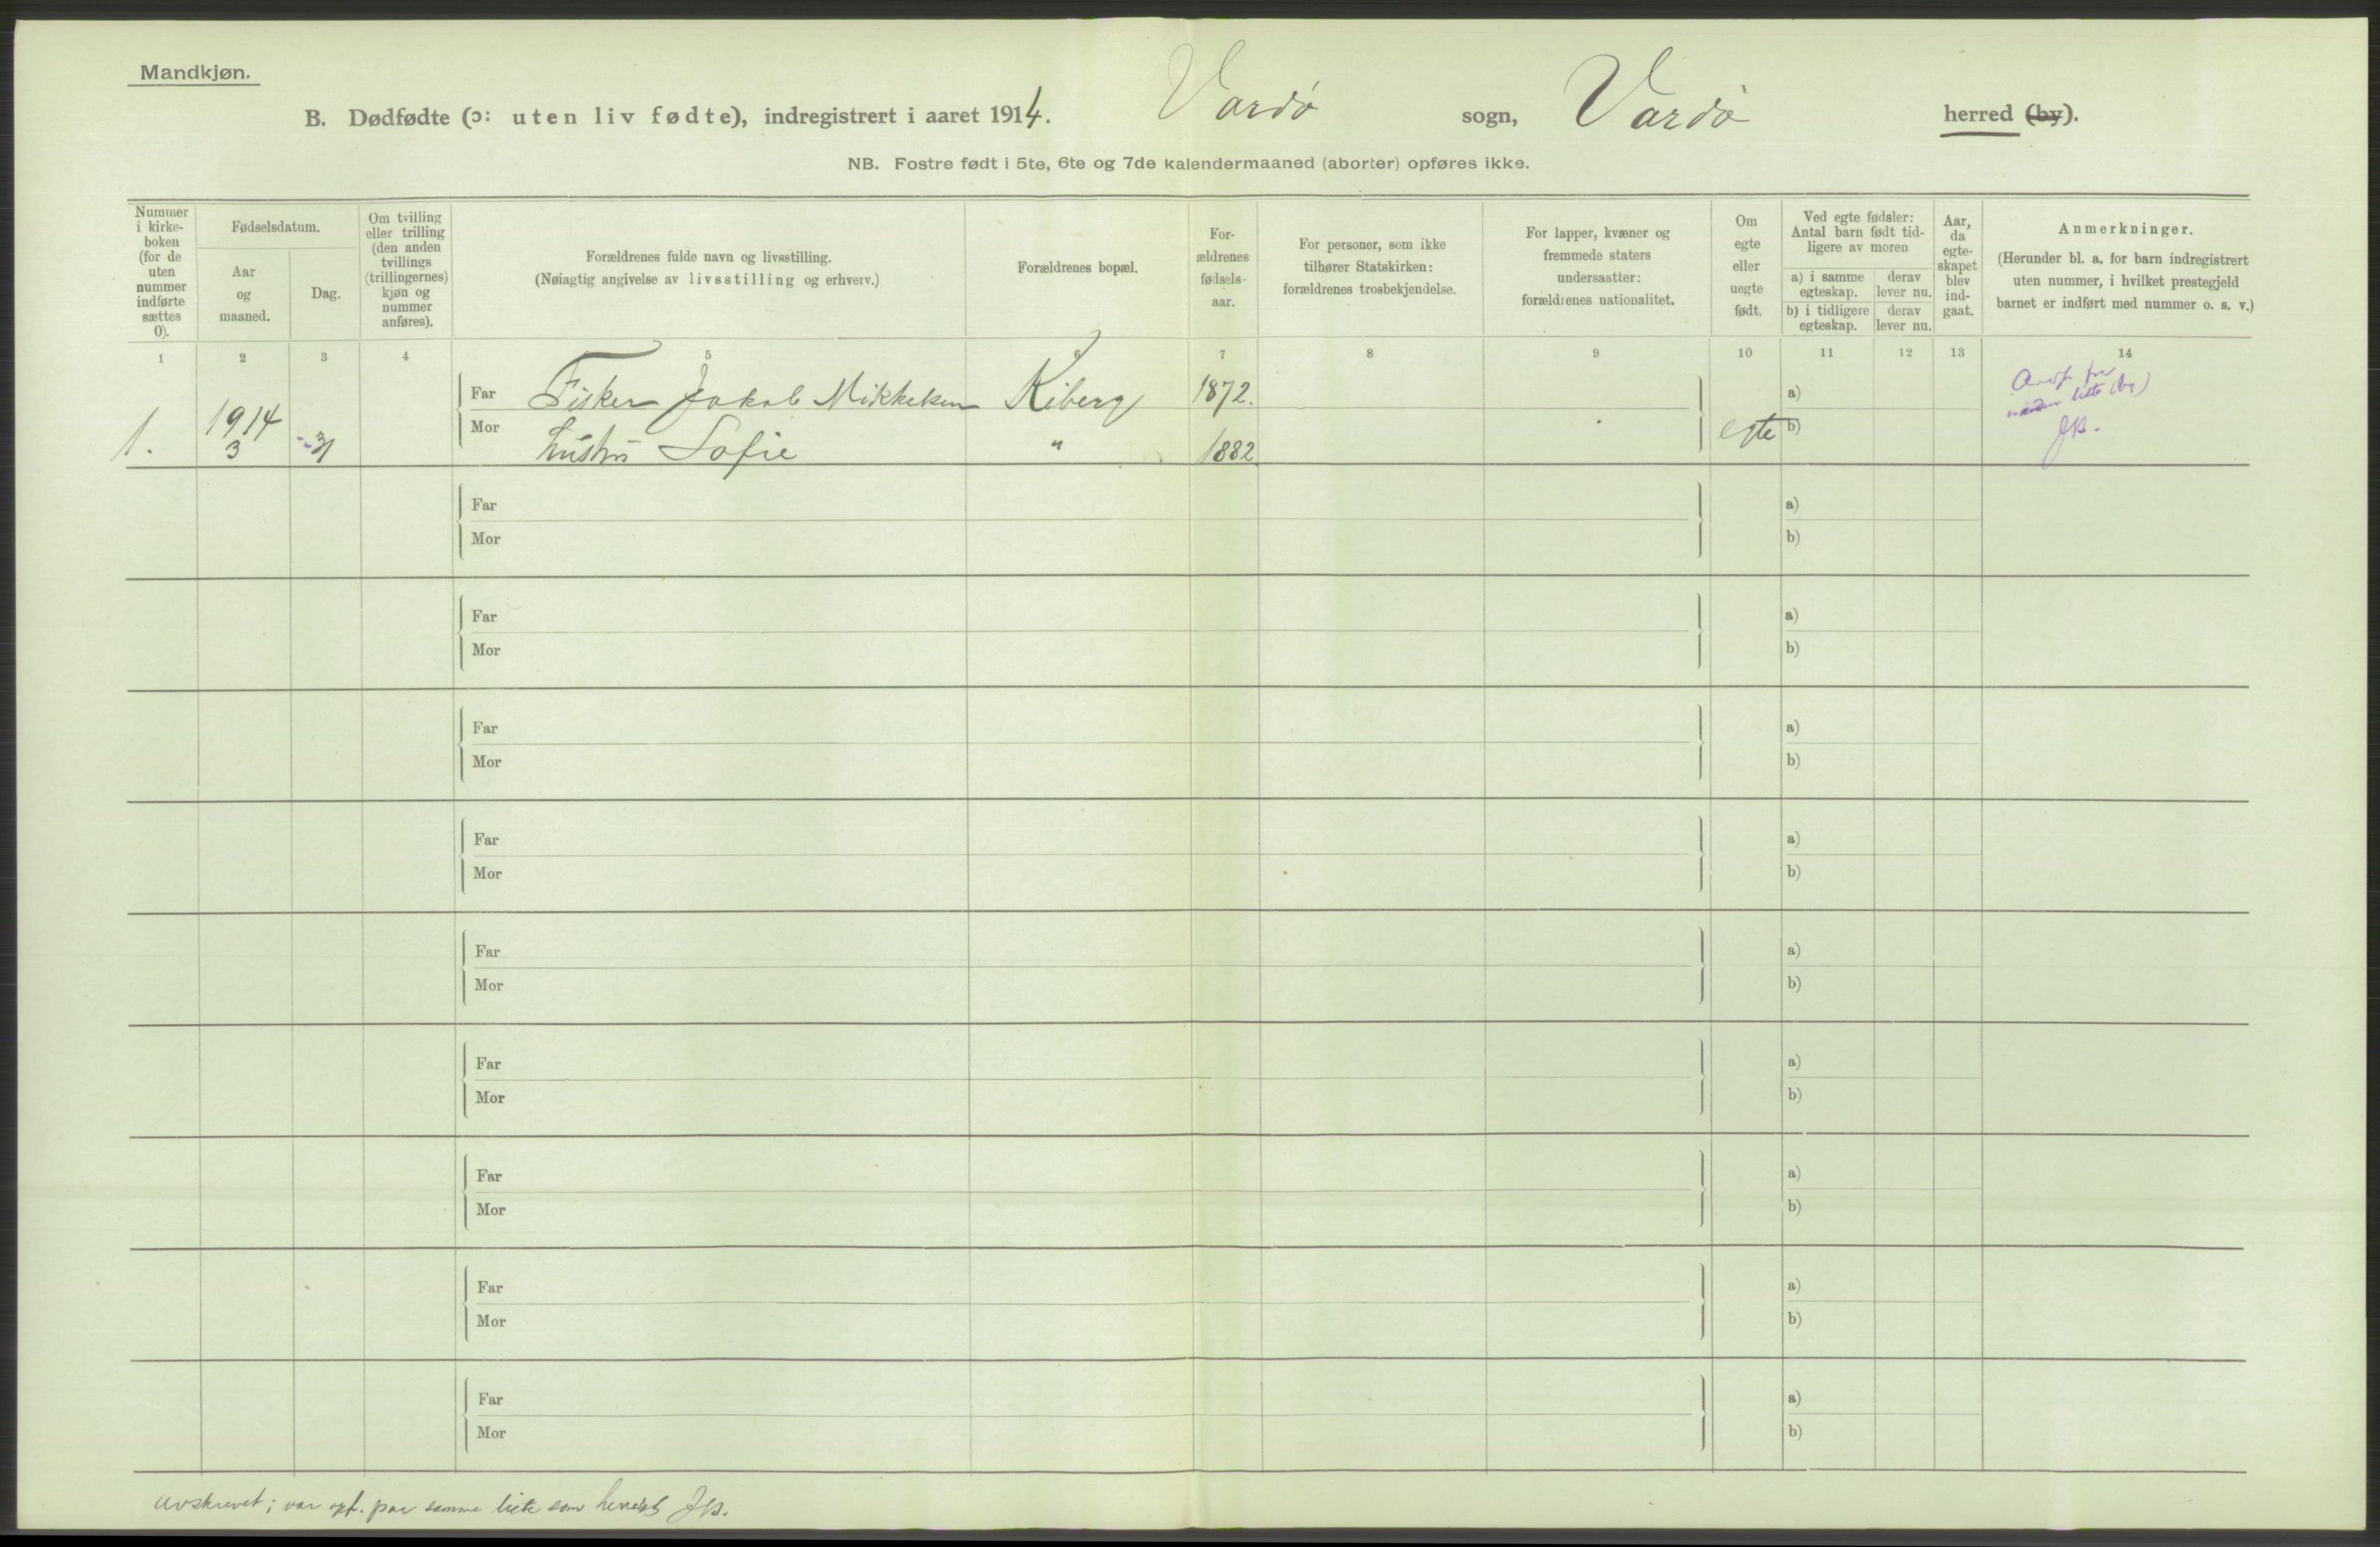 Mandkjøn.
B. Dødfødte (ɔ: uten liv fødte), indregistrert i aaret 1914. Vardø sogn, Vardø herred (by).
NB. Fostre født i 5te, 6te og 7de kalendermaaned (aborter) opføres ikke.
Nummer i kirke-boken (for de uten nummer indførte sættes 0).
Fødselsdatum.
Aar og maaned.
Dag.
Om tvilling eller trilling (den anden tvillings (trillingernes) kjøn og nummer anføres).
Forældrenes fulde navn og livsstilling.
(Nøiagtig angivelse av livsstilling og erhverv.)
Forældrenes bopæl.
For-ældrenes fødsels-aar.
For personer, som ikke tilhører Statskirken: forældrenes trosbekjendelse.
For lapper, kvæner og fremmede staters undersaatter: forældrenes nationalitet.
Om egte eller uegte født.
Ved egte fødsler: Antal barn født tid-ligere av moren
a) i samme egteskap. derav lever nu.
b) i tidligere egteskap. derav lever nu.
Aar, da egte-skapet blev ind-gaat.
Anmerkninger.
(Herunder bl. a. for barn indregistrert uten nummer, i hvilket prestegjeld barnet er indført med nummer o. s. v.)
1 2 3 4 5 6 7 8 9 10 11 12 13 14
1. 1914 3 31
Far Fisker Jakob Mikkelsen Kiberg 1872. a)
Mor hustru Sofie " 1882 egte b)
liste (by)
JB.
Far a)
Mor b)
Far a)
Mor b)
Far a)
Mor b)
Far a)
Mor b)
Far a)
Mor b)
Far a)
Mor b)
Far a)
Mor b)
Far a)
Mor b)
Far a)
Mor b)
avskrevet; var opf. paa samme liste som herredet JB.